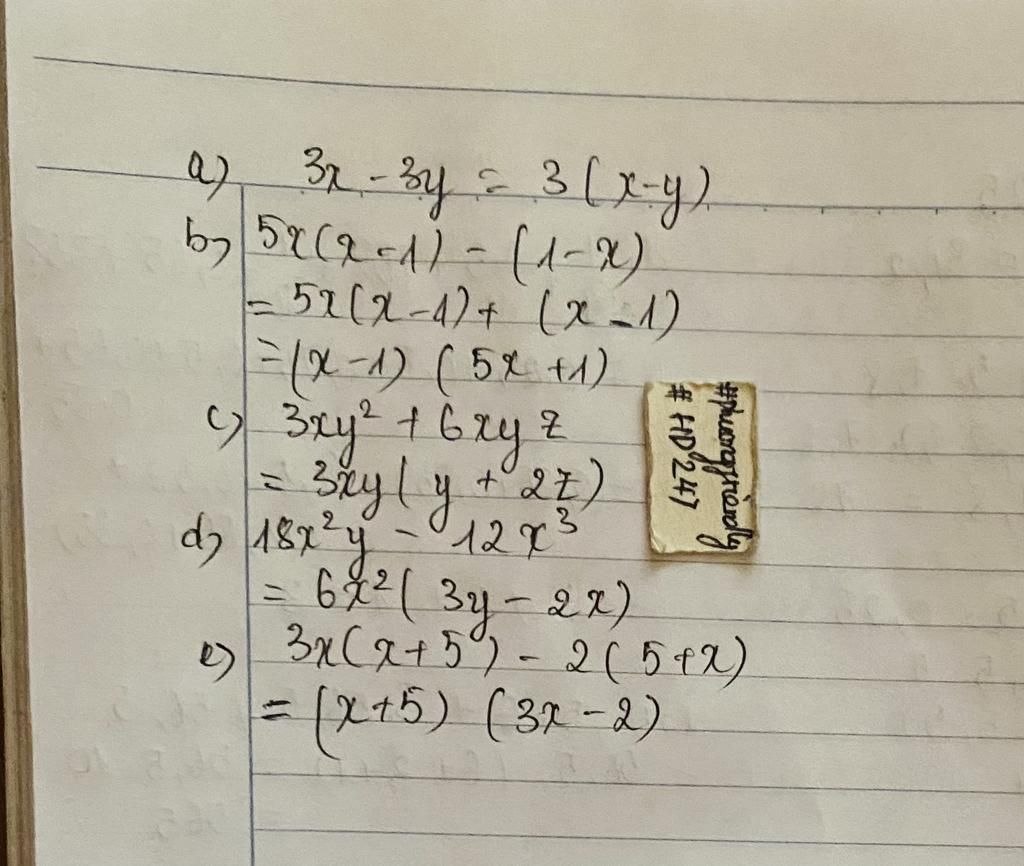 a) 3x - 3y = 3(x-y)
b) 5x(x-1) - (1-x)
= 5x(x-1) + (x-1)
= (x-1) (5x+1)
c) 3xy² + 6xyz
= 3xy(y + 2z)
d) 18x²y - 12x³
= 6x²(3y - 2x)
e) 3x(x+5) - 2(5+x)
= (x+5) (3x-2)
# HD247